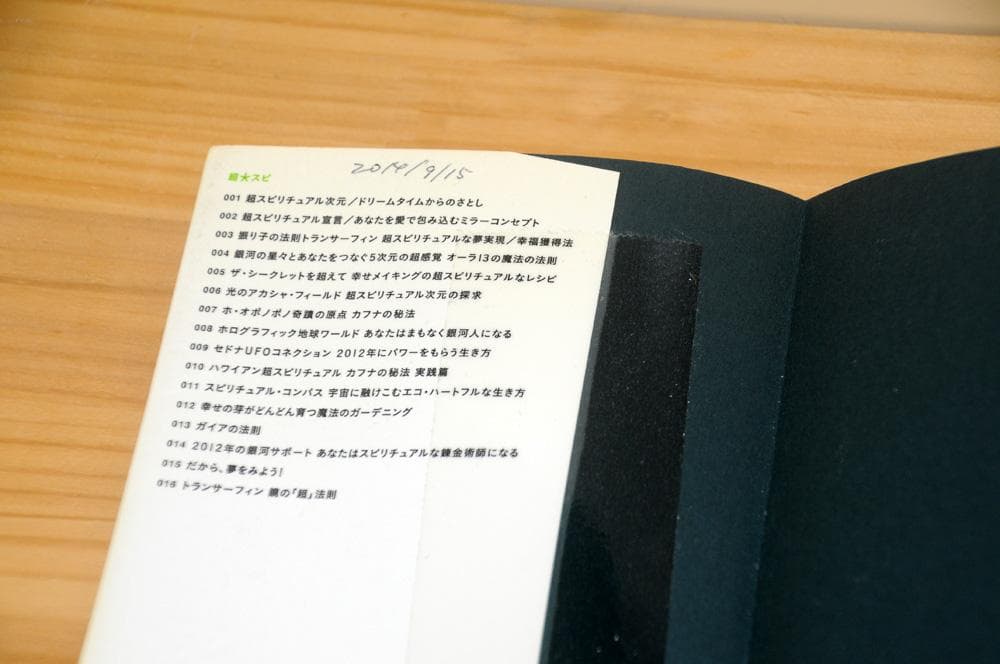 超★スピ
2014/9/15
001 超スピリチュアル次元/ドリームタイムからのさとし
002 超スピリチュアル宣言/あなたを愛で包み込むミラーコンセプト
003 振り子の法則トランサーフィン 超スピリチュアルな夢実現/幸福獲得法
004 銀河の星々とあなたをつなぐ5次元の超感覚 オーラ13の魔法の法則
005 ザ・シークレットを超えて 幸せメイキングの超スピリチュアルなレシピ
006 光のアカシャ・フィールド 超スピリチュアル次元の探求
007 ホ・オポノポノ奇蹟の原点 カフナの秘法
008 ホログラフィック地球ワールド あなたはまもなく銀河人になる
009 セドナUFOコネクション 2012年にパワーをもらう生き方
010 ハワイアン超スピリチュアル カフナの秘法 実践篇
011 スピリチュアル・コンパス 宇宙に融けこむエコ・ハートフルな生き方
012 幸せの芽がどんどん育つ魔法のガーデニング
013 ガイアの法則
014 2012年の銀河サポート あなたはスピリチュアルな錬金術師になる
015 だから、夢をみよう!
016 トランサーフィン 鏡の「超」法則